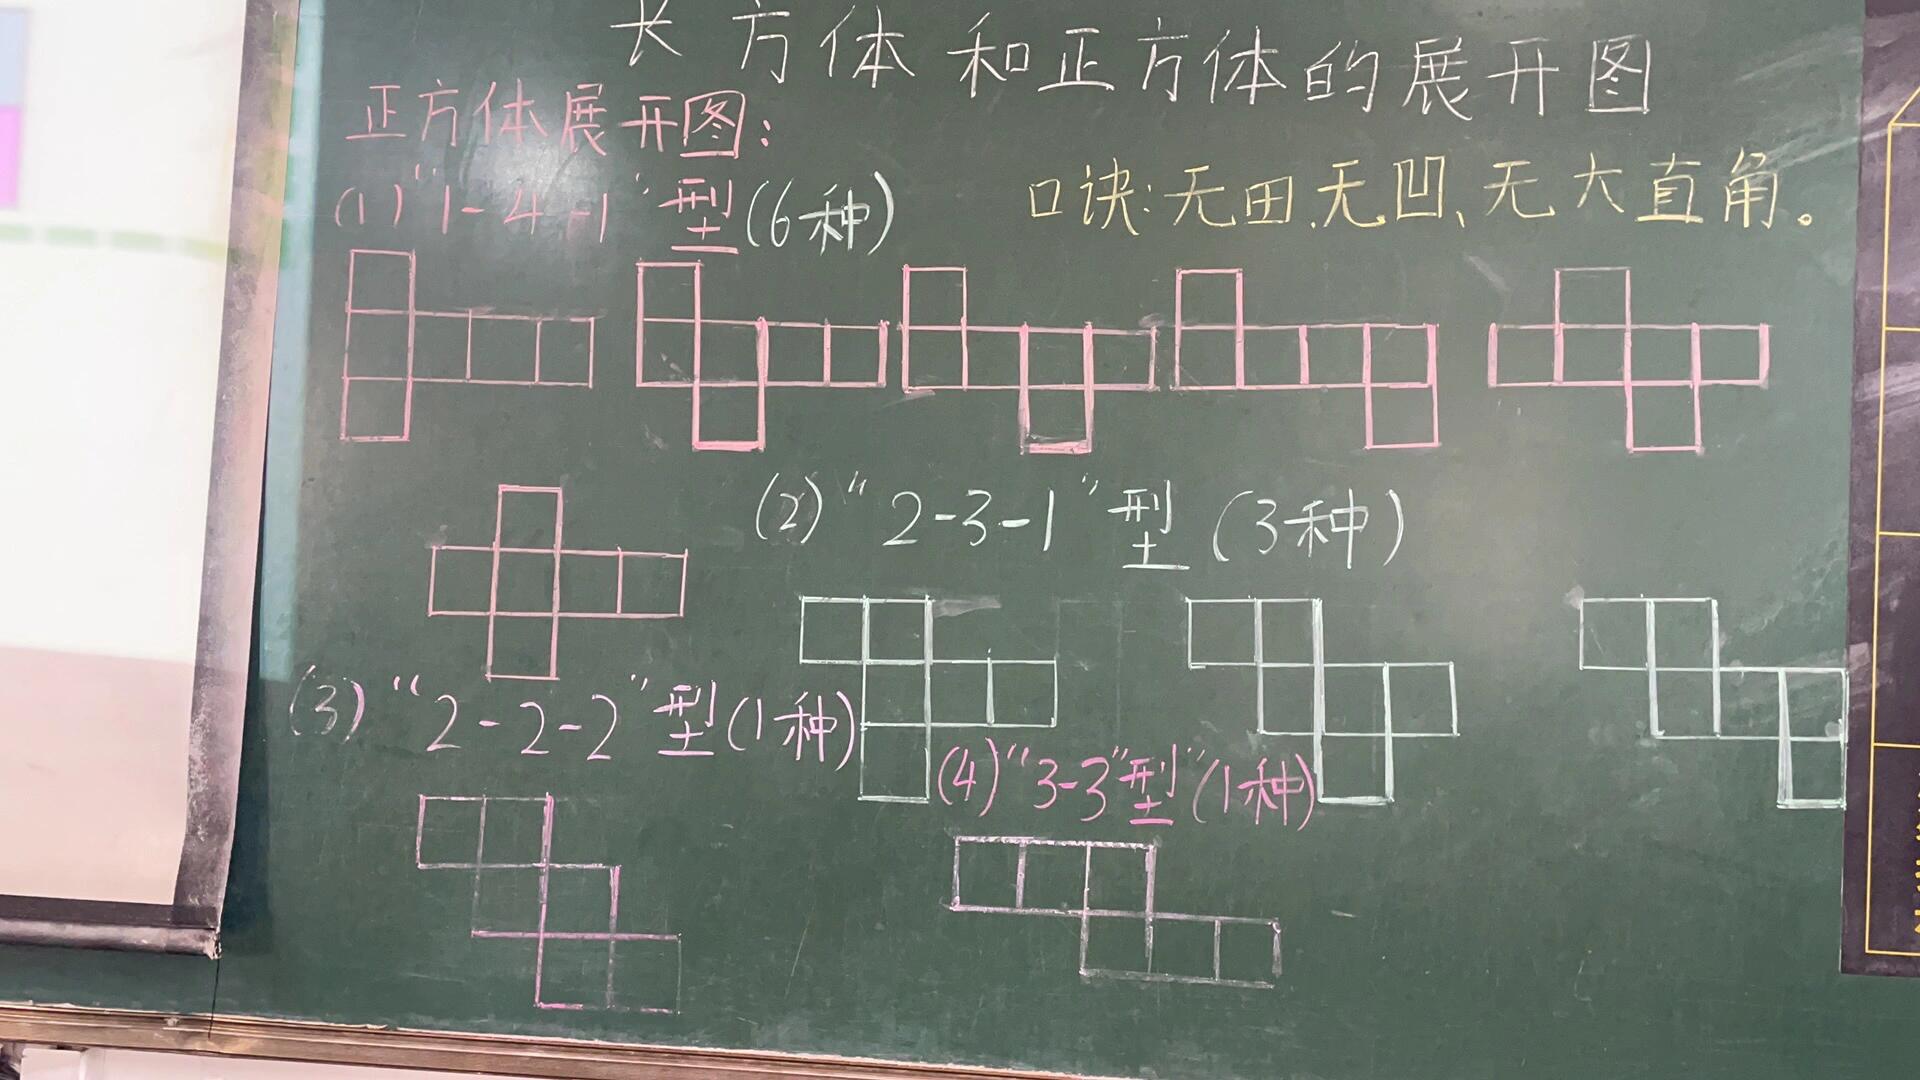 长方体和正方体的展开图
正方体展开图:
(1)“1-4-1”型(6种)
口诀:无田.无凹、无大直角。
(2)“2-3-1”型(3种)
(3)“2-2-2”型(1种)
(4)“3-3”型”(1种)